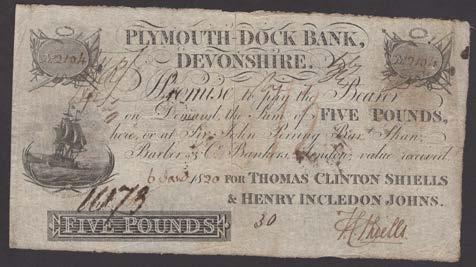 PLYMOUTH-DOCK BANK,
DEVONSHIRE.
No 2104
No 2104
Promise to pay the Bearer
on Demand, the Sum of FIVE POUNDS,
here, or at Sir John Perring Bart. Shaw,
Barber & Co. Bankers, London, value received
6 Jany 1820 FOR THOMAS CLINTON SHIELLS
& HENRY INCLEDON JOHNS.
16173
FIVE POUNDS
30
Shiells